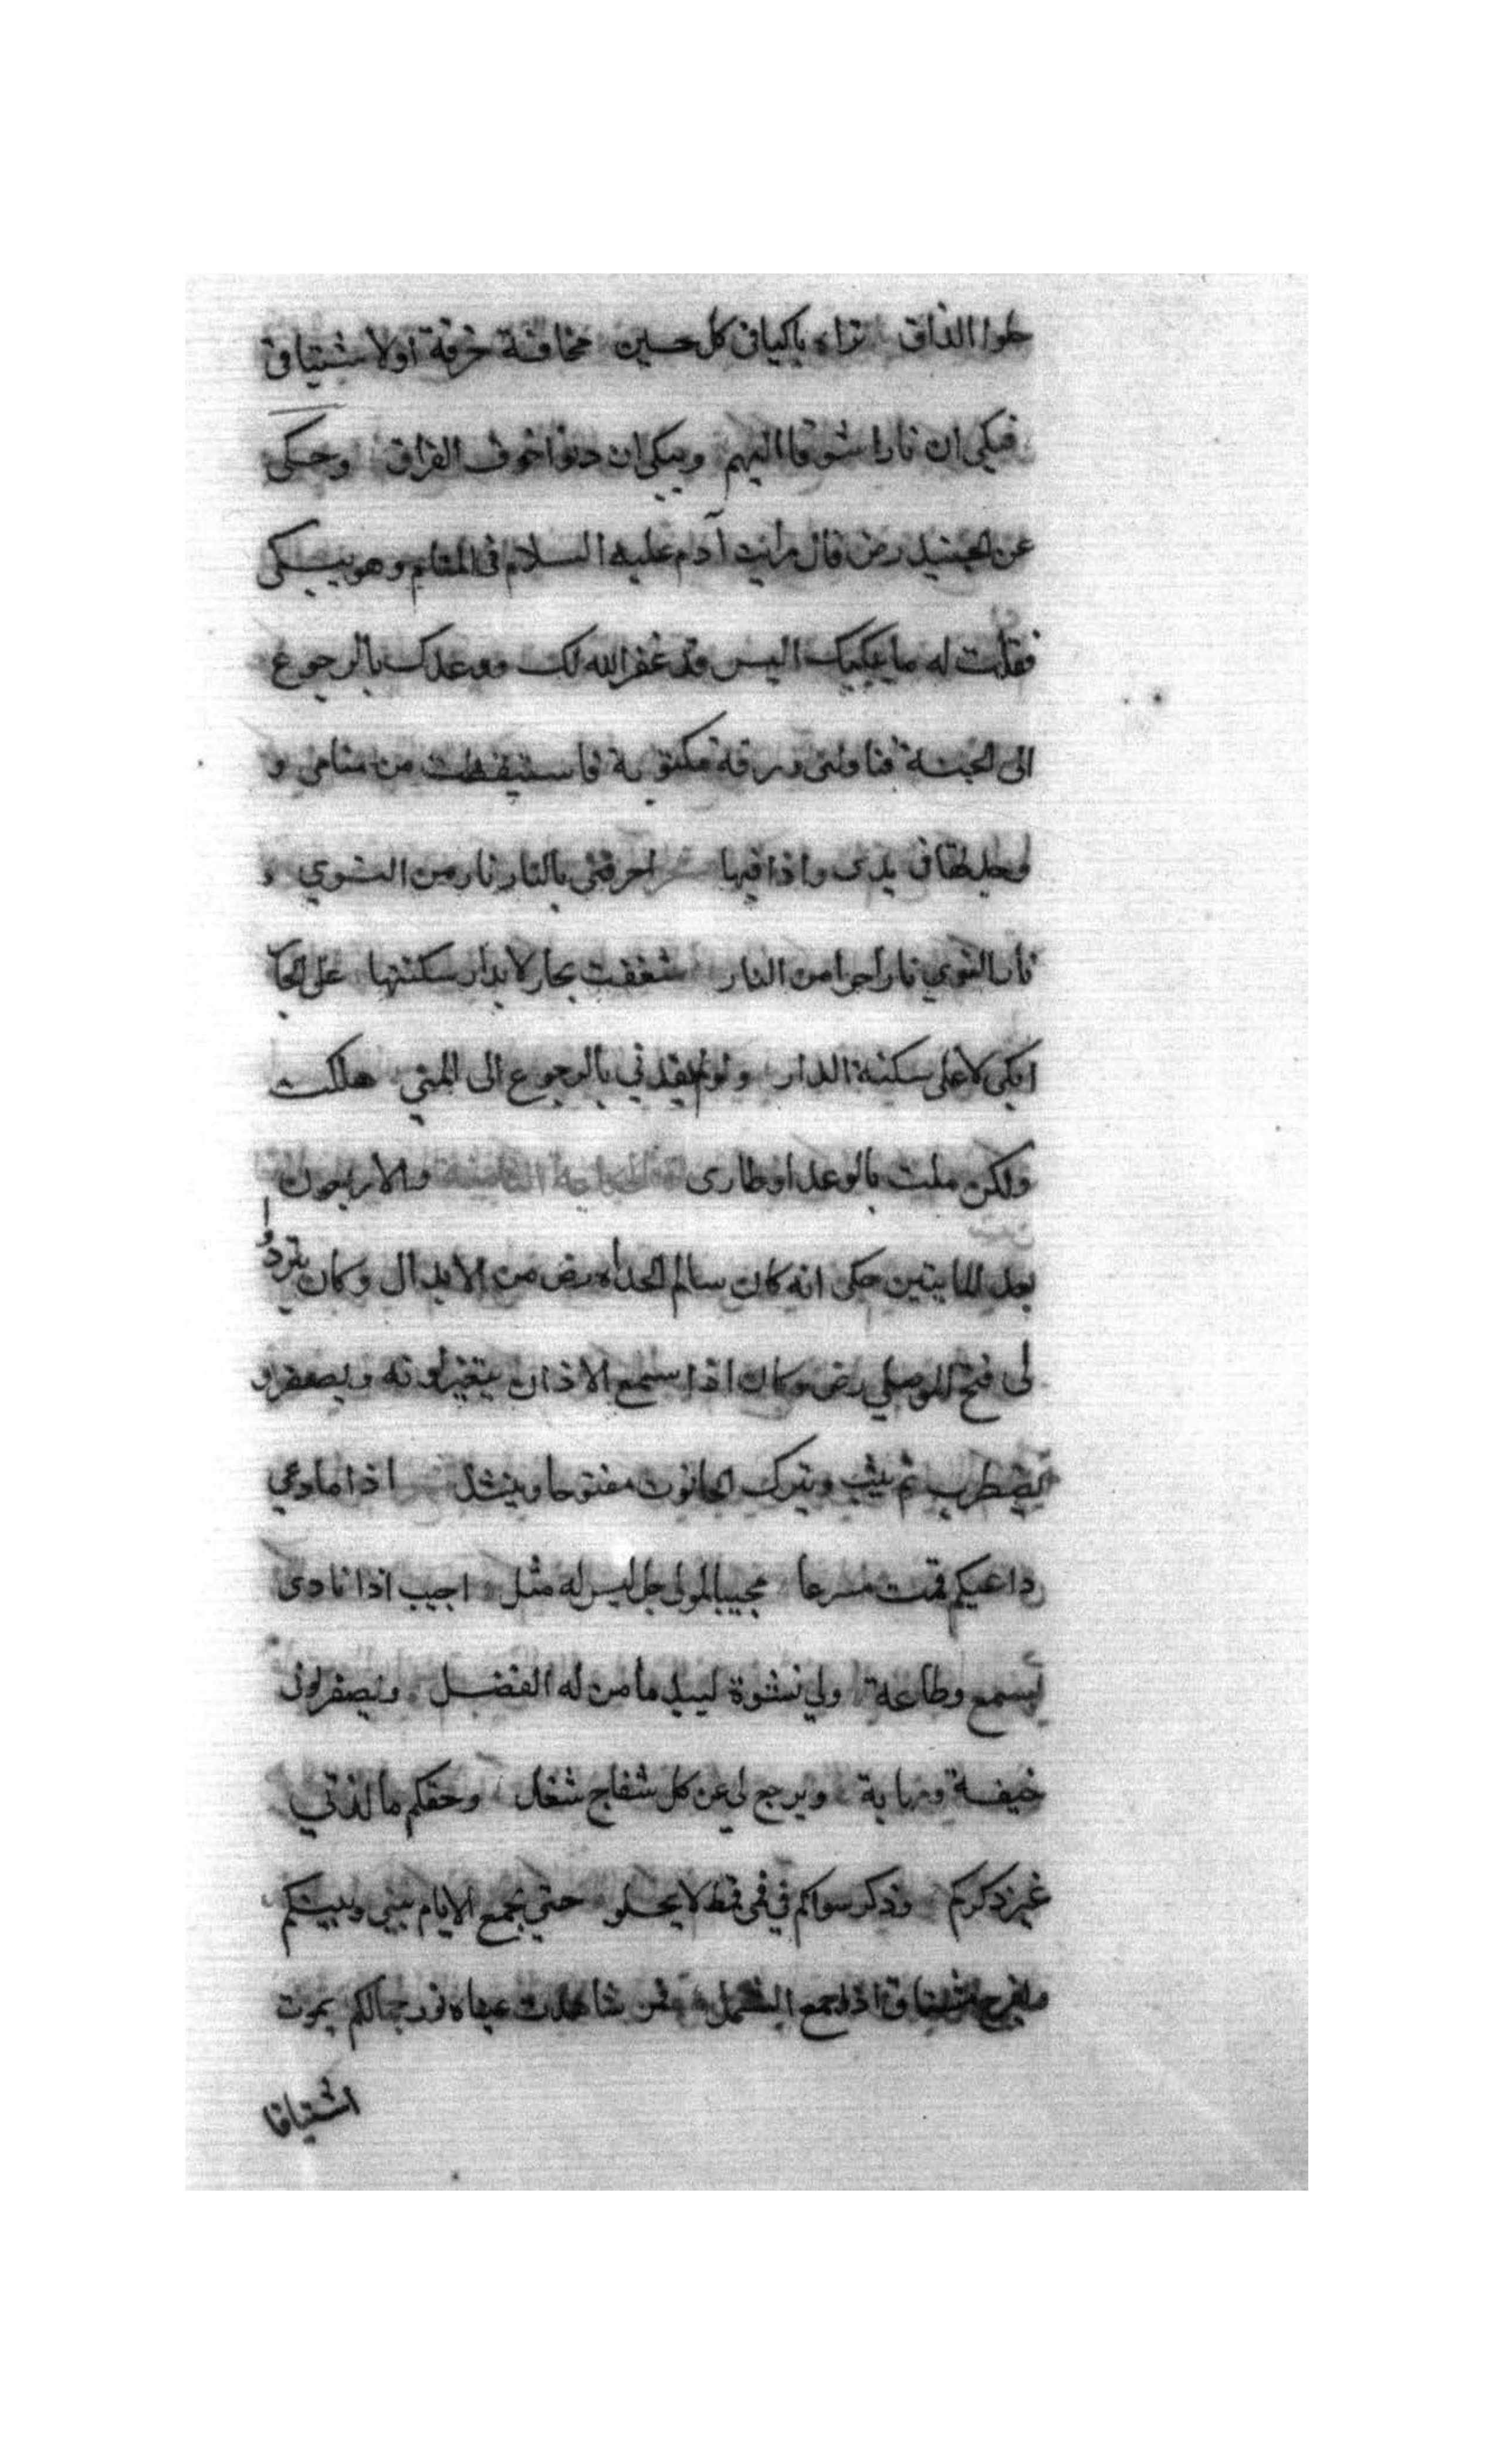 حلوا المذاق تراه باكيا في كل حسين مخافة خرقة اولا شتياق
فيبكي ان نارا شوقا اليهم ويبكي ان دنوا خوف الفراق وحكى
عن الجنيد رض قال رايت آدم عليه السلام في المنام وهو يبكى
فقلت له ما يبكيك اليس قد غفر الله لك ووعدك بالرجوع
الى الجنة فناولنى ورقة مكتوبة فاستيقظت من منامى و
وجدطقا في يدى واذا فيها احرقتنى بالنار نار من الشوي و
نار النوي نار احرا من النار شغفت بجار لا بدار سكنتها على الجا
ابكى لا على سكنة الدار ولو لم يعدني بالرجوع الى المنى هلكت
ولكن ملت بالوعد اوطارى الحكاية الثامنة والاربعون
بعد المايتين حكى انه كان سالم الحداد رض من الابدال وكان يتردد
لى فتح الموصلي رض وكان اذا سمع الاذان يتغير لونه ويصفر و
يضطرب ثم يثب ويترك الحانوت مفتوحا وينشد اذا ما دعي
داعيكم قمت مسرعا مجيبا لمولى جل ليس له مثل اجيب اذا نادى
بسمع وطاعة ولي نشوة لبيك ما من له الفضل ويصفر لونى
خيفة ومهابة ويرجع لي عن كل شغل شغل وحقكم ما لذتي
غير ذكركم وذكر سواكم في فمى قط لا يحلو حتى يجمع الايام بيني وبينكم
ما يفرح مشتاق اذا جمع الشمل فمن شاهدت عيناه نور جمالكم يموت
اشتياقا